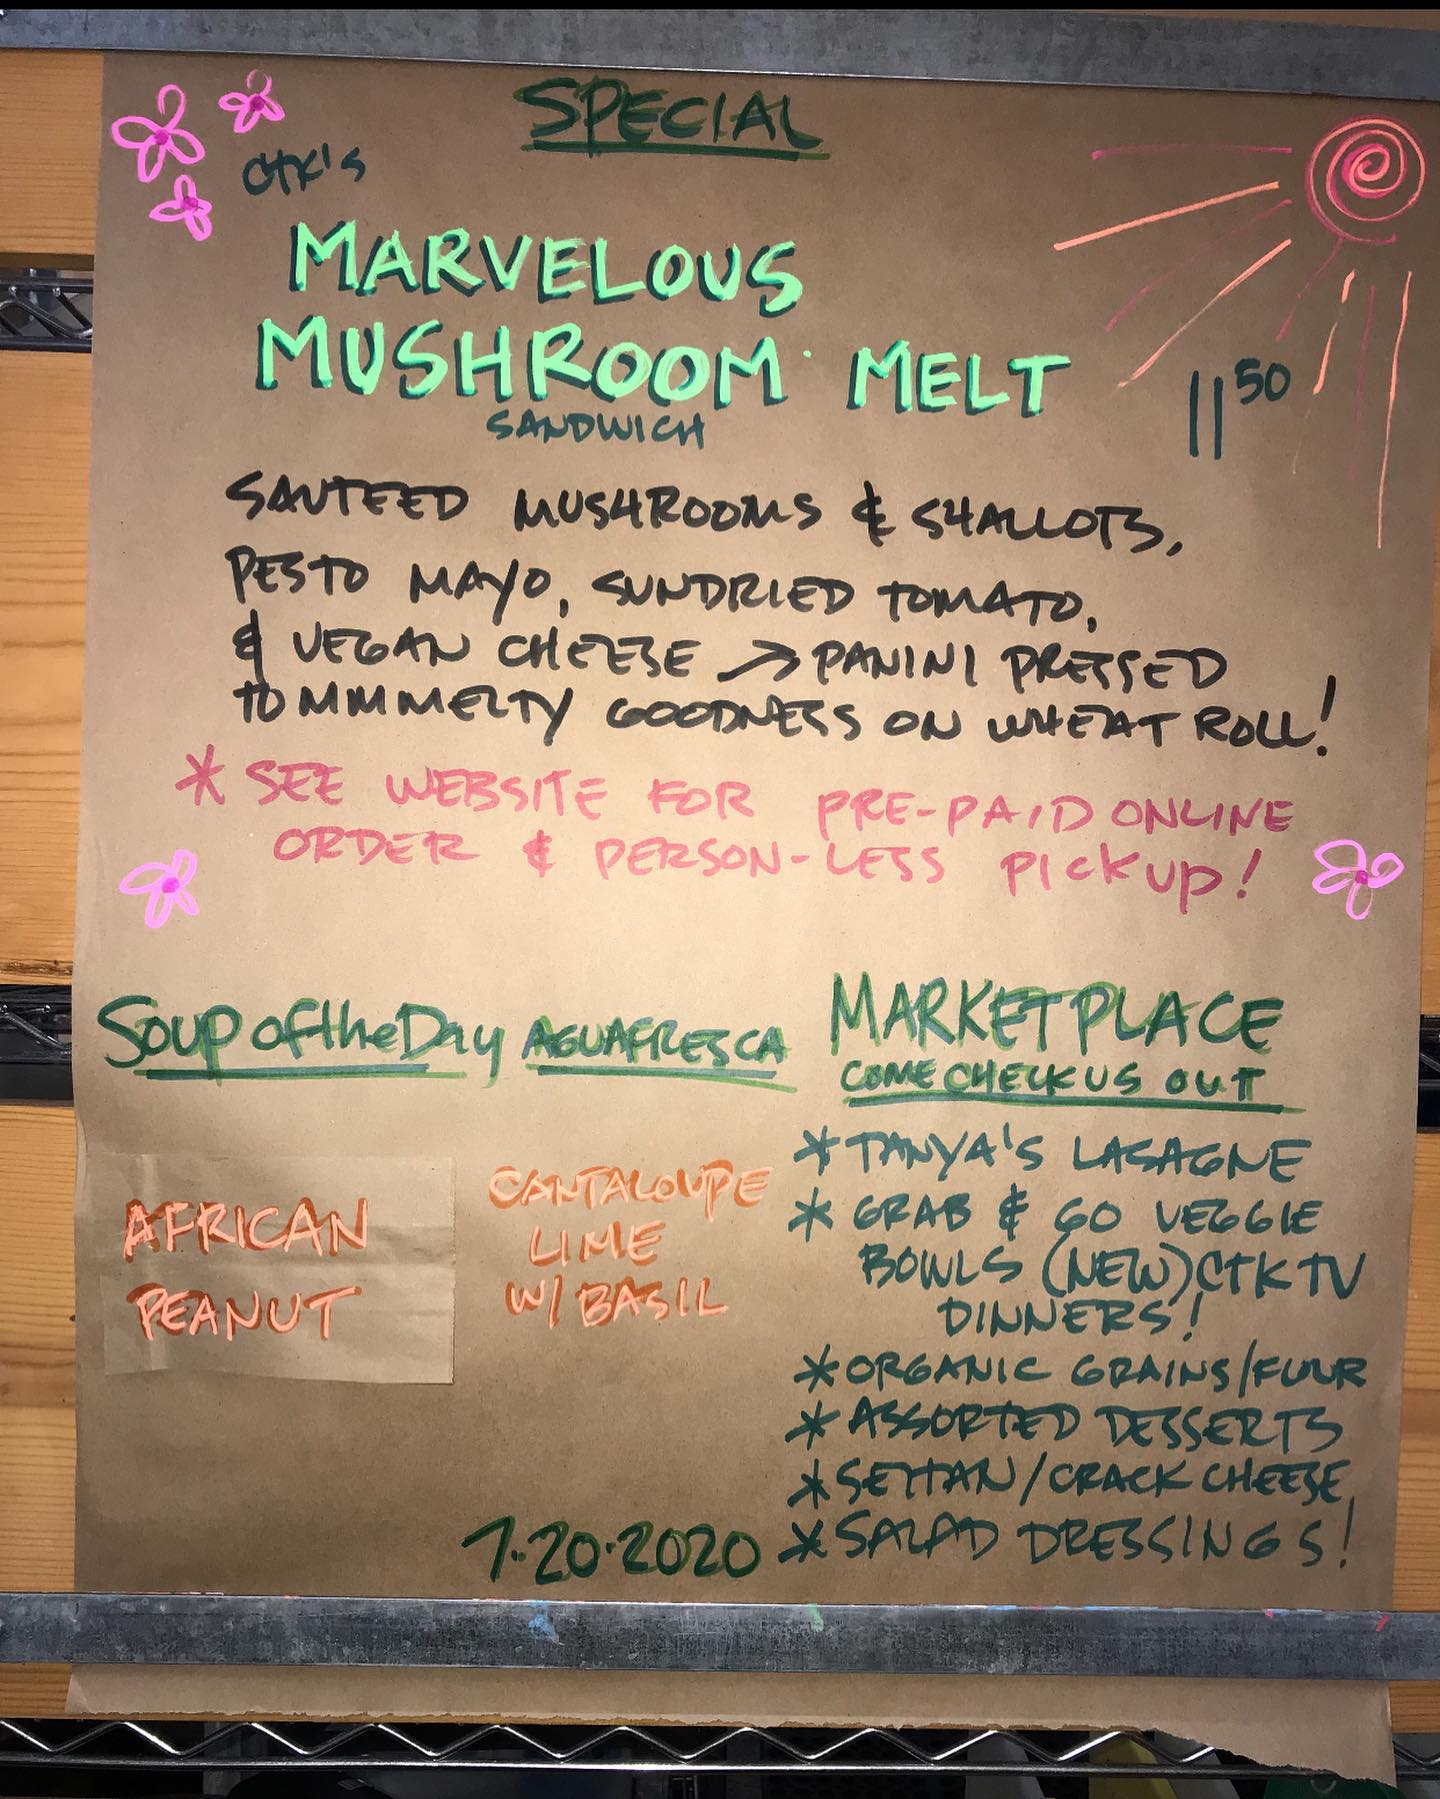 SPECIAL
CTK'S
MARVELOUS
MUSHROOM MELT
SANDWICH
11 50
SAUTEED MUSHROOMS & SHALLOTS,
PESTO MAYO, SUNDRIED TOMATO,
& VEGAN CHEESE → PANINI PRESSED
TO MMMMELTY GOODNESS ON WHEAT ROLL!
* SEE WEBSITE FOR PRE-PAID ONLINE
ORDER & PERSON-LESS PICKUP!
Soup of the Day
AFRICAN
PEANUT
AGUA FRESCA
CANTALOUPE
LIME
W/ BASIL
MARKETPLACE
COME CHECK US OUT
* TANYA'S LASAGNE
* GRAB & GO VEGGIE
BOWLS (NEW) CTK TV
DINNERS!
* ORGANIC GRAINS/FLOUR
* ASSORTED DESSERTS
* SEITAN/CRACK CHEESE
* SALAD DRESSINGS!
7.20.2020